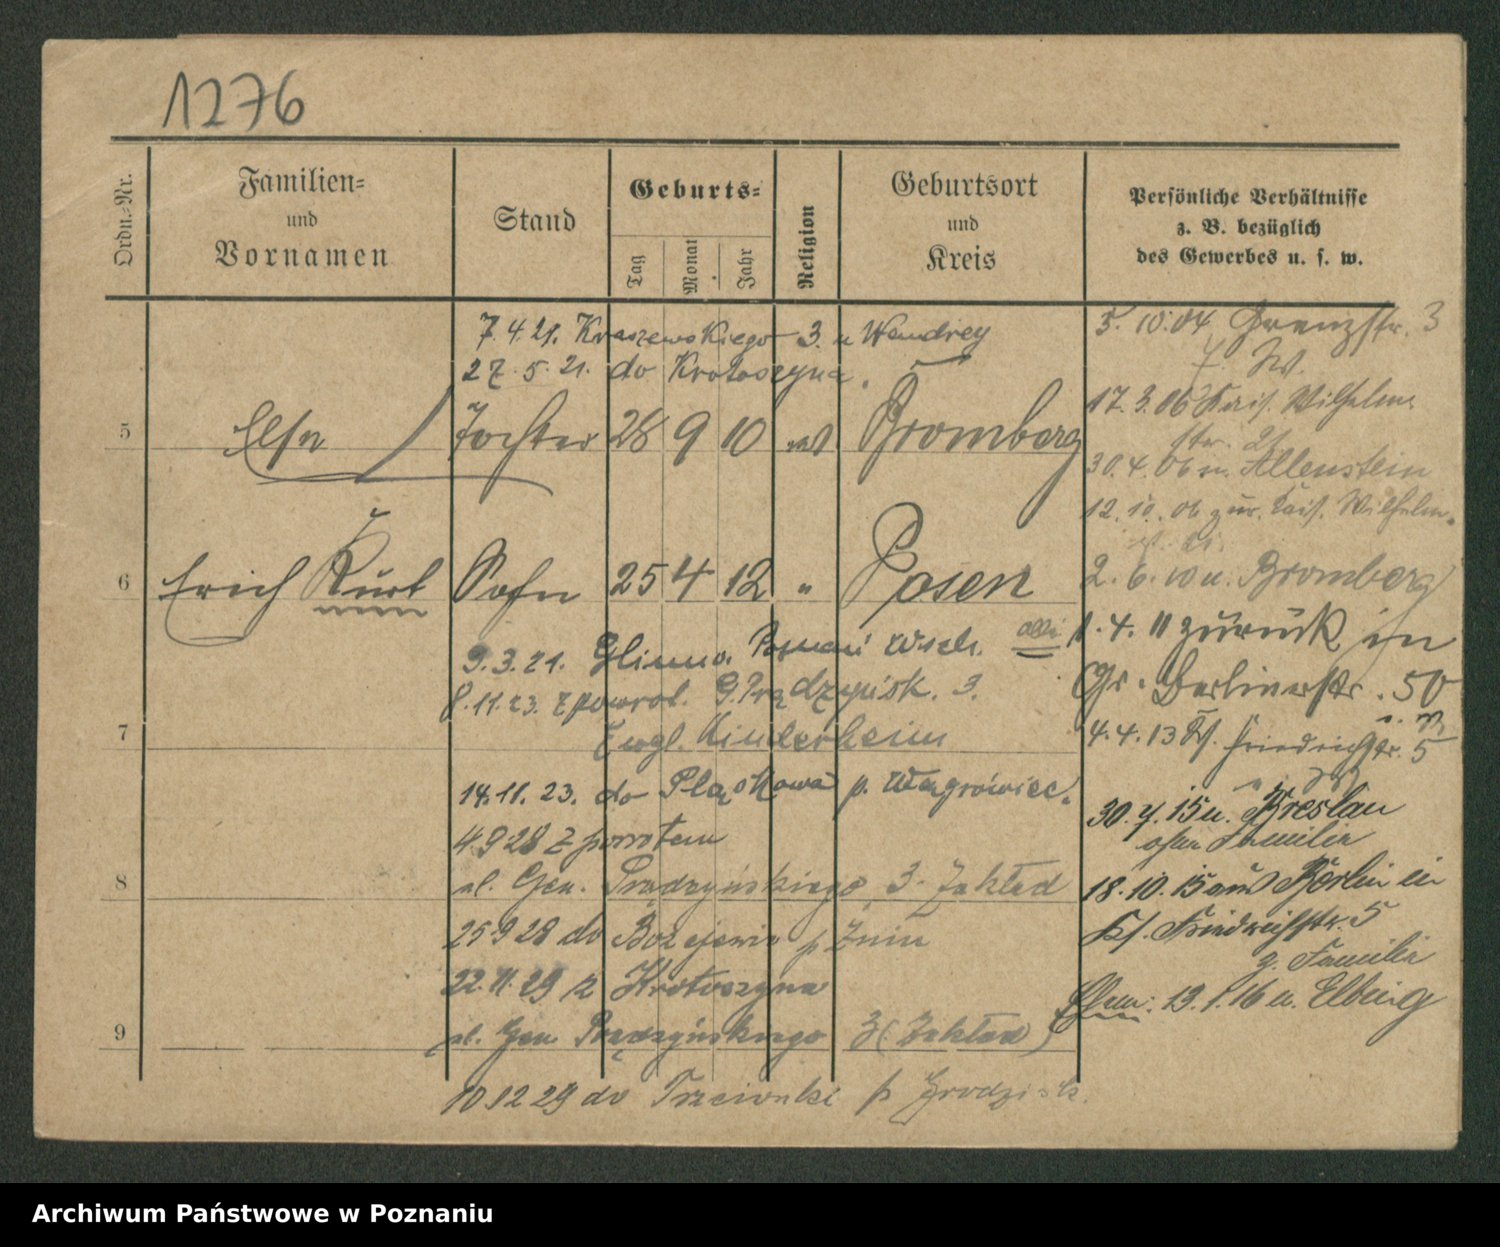 1276
Ordn.-Nr.
Familien-
und
Vornamen
Stand
Geburts-
Tag
Monat
Jahr
Religion
Geburtsort
und
Kreis
Persönliche Verhältnisse
z. B. bezüglich
des Gewerbes u. s. w.
7.4.21. Kraszewskiego 3. u Wendrey
27.5.21. do Krotoszyna.
5 Else Tochter 28 9 10 Bromberg
6 Erich Kurt Sohn 25 4 12 " Posen
9.3.21. Glinno. Poznań Wsch.
8.11.23. z powrot. G. Prądzyńsk. 3.
7 Evgl. Kinderheim
14.11.23. do Pląskowa p. Wągrowiec.
4 9 28 z powrotem
8 ul. Gen. Prądzyńskiego 3. Zakład
25 9 28 do Bożejewic p Żnin
22.11.29 z Krotoszyna
9 ul. Gen. Prądzyńskiego 3 (Zakład)
10 12 29 do Trzcionki p Grodzisk.
5.10.04 Grenzstr. 3
17.3.06 Kais. Wilhelm
str. 21
30.4.06 n. Allenstein
12.10.06 zur. Kais. Wilhelm
2.6.10 n. Bromberg
1.4.11 zurück in
Gr. Berlinerstr. 50
4.4.13 Ks. Friedrichstr. 5
30.7.15 n. Breslau
ohne Familie
18.10.15 aus Berlin in
Ks. Friedrichstr. 5
z. Familie
13.1.16 n. Elbing
Archiwum Państwowe w Poznaniu